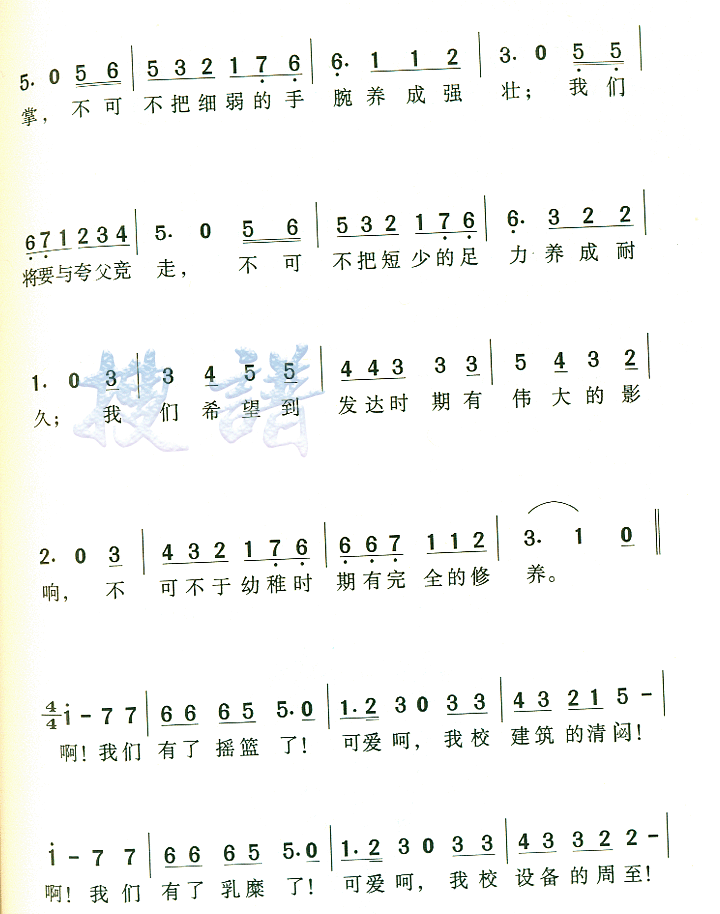 5· 0 5 6 | 5 3 2 1 7 6 | 6· 1 1 2 | 3· 0 5 5 |
掌，不可 不把细弱的手 腕养成强 壮；我们
6 7 1 2 3 4 | 5· 0 5 6 | 5 3 2 1 7 6 | 6· 3 2 2 |
将要与夸父竞 走，不可 不把短少的足 力养成耐
1· 0 3 | 3 4 5 5 | 4 4 3 3 3 | 5 4 3 2 |
久；我 们希望到 发达时期有 伟大的影
2· 0 3 | 4 3 2 1 7 6 | 6 6 7 1 1 2 | 3· 1 0 ‖
响，不 可不于幼稚时 期有完全的修 养。
4/4 i - 7 7 | 6 6 6 5 5· 0 | 1· 2 3 0 3 3 | 4 3 2 1 5 - |
啊！我们 有了摇篮了！ 可爱呵，我校 建筑的清闷！
i - 7 7 | 6 6 6 5 5· 0 | 1· 2 3 0 3 3 | 4 3 3 2 2 - |
啊！我们 有了乳糜了！ 可爱呵，我校 设备的周至！
搜谱